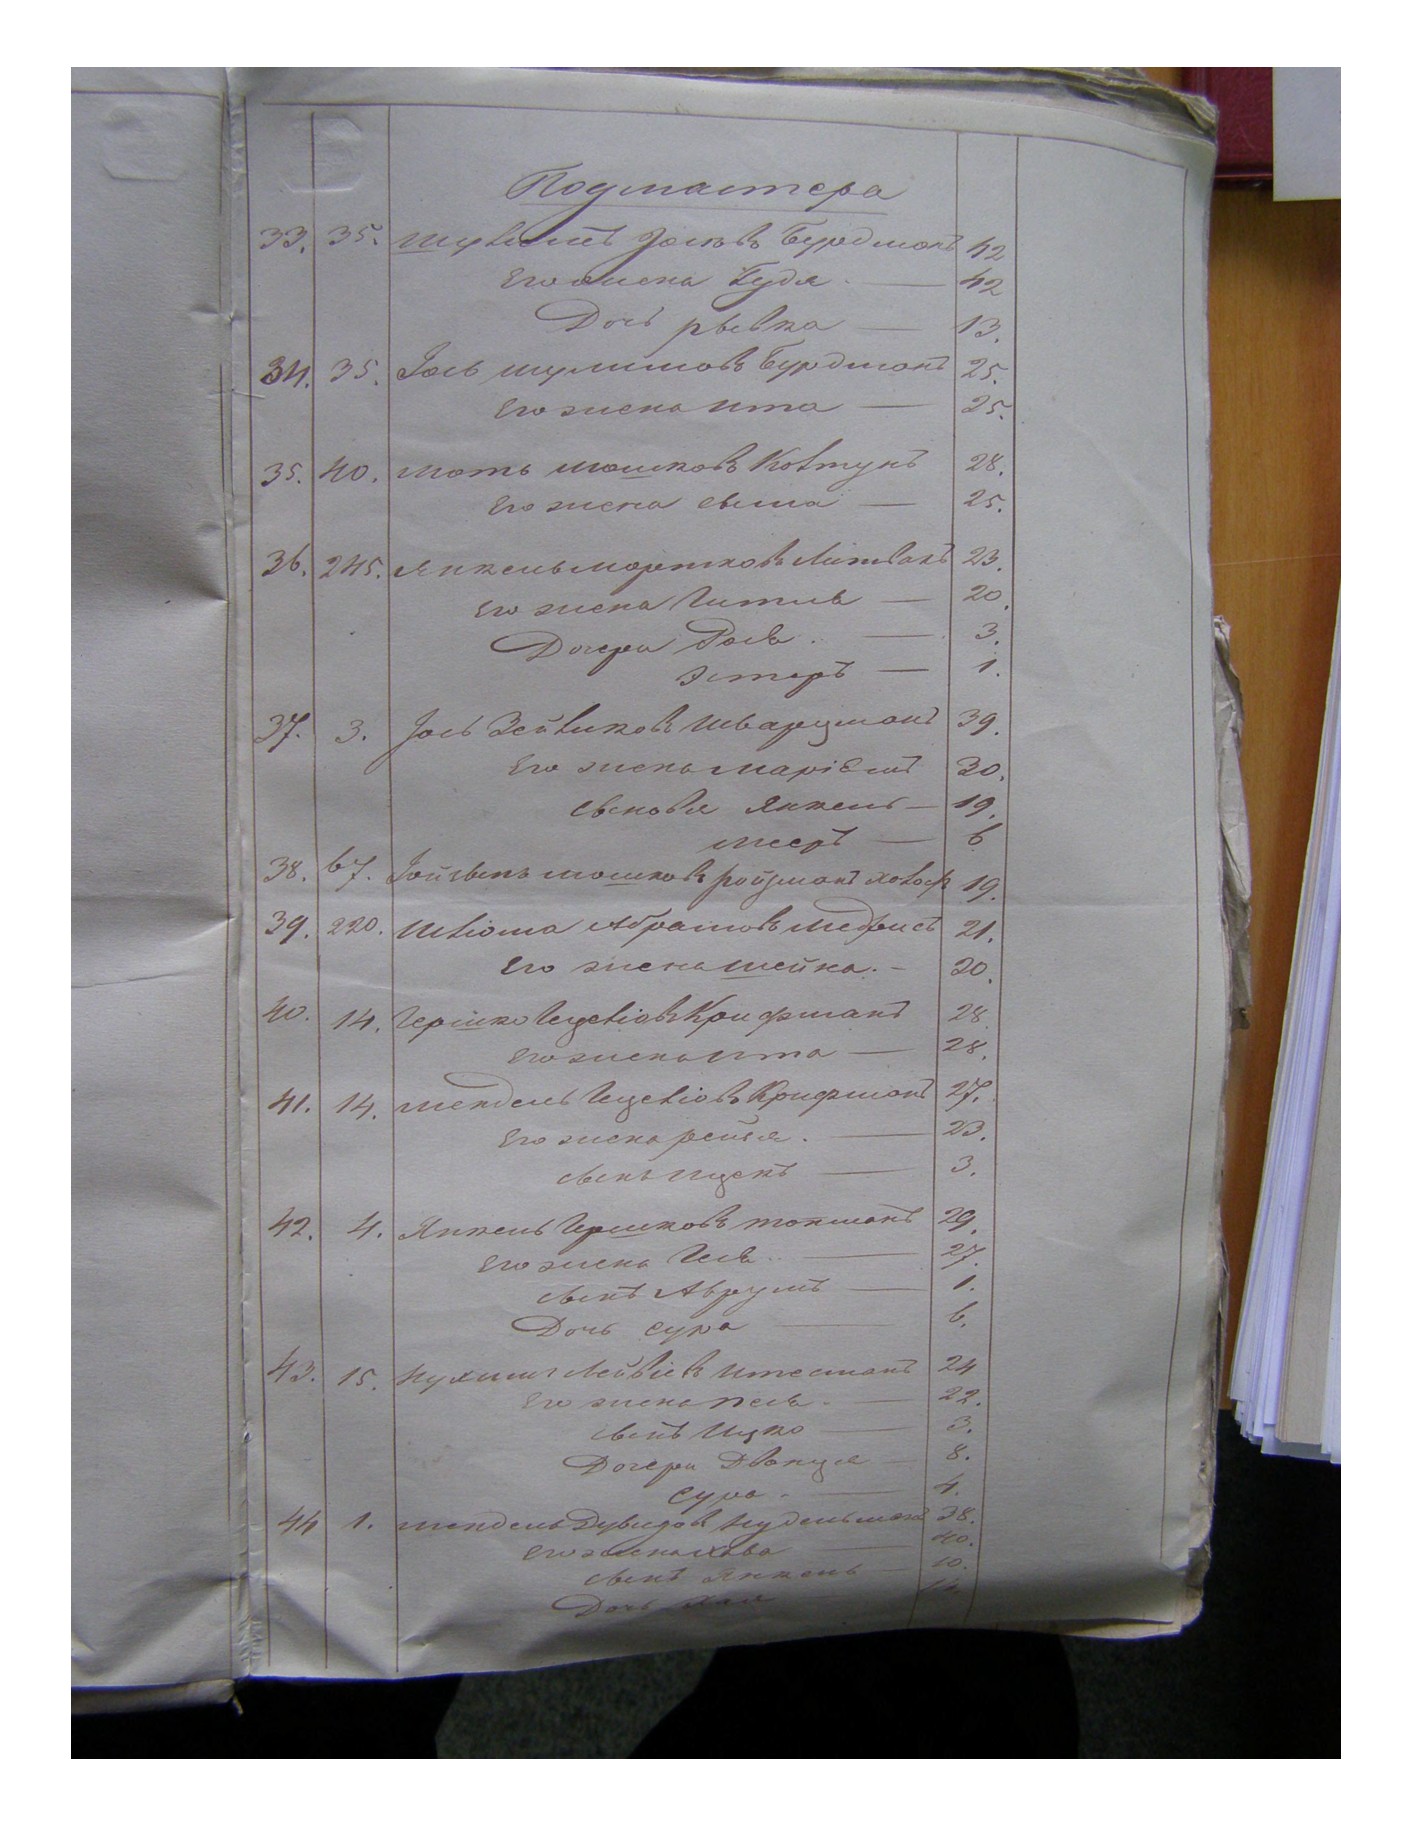 Подмастера
33. 35. Шулимъ Іосьовъ Бурдманъ 42
Его жена Гудя 42
Дочь рывка 13.
34. 35. Іось шулимовъ Бурдманъ 25.
Его жена ита 25.
35. 40. мать мошковъ Ковтунъ 28.
Его жена сыма 25.
36. 245. Янкель морошковъ Литвакъ 23.
Его жена Гитля 20.
Дочери Рося 3.
Эстеръ 1.
37. 3. Іось Зейликовъ Шварцманъ 39.
Его жена маріемъ 30.
сыновья Янкель 19.
мееръ 6
38. 67. мошковъ ройзманъ 19.
39. 220. Шліома Абрамовъ 21.
Его жена шейна. 20.
40. 14. Гершко Ицковъ Крифманъ 28.
Его жена ита 28.
41. 14. мендель Крифманъ 27.
Его жена рейзя. 23.
сынъ ицекъ 3.
42. 4. Янкель Гершковъ токманъ 29.
Его жена Геля 27.
сынъ Аврумъ 1.
Дочь сура 6.
43. 15. Нухимъ Лейбіевъ 24
Его жена песя. 22.
сынъ Ицко 3.
Дочери Двойця 8.
сура. 4.
44 1. мендель Дувидовъ нудельманъ 38.
Его жена хава 40.
сынъ Янкель 10.
Дочь хая